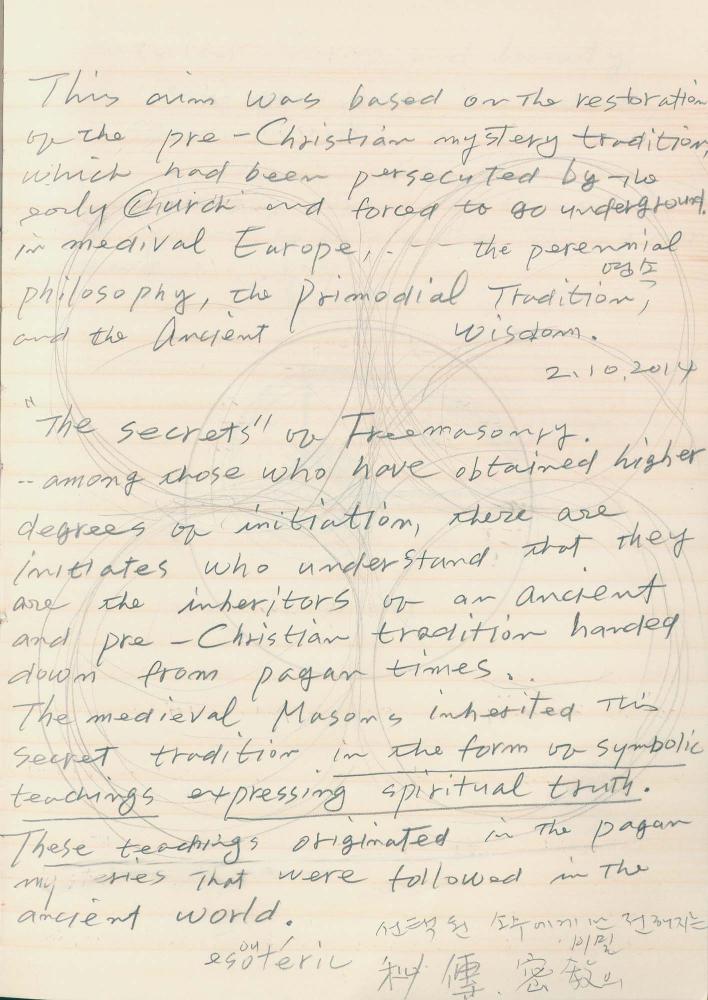 This aim was based on the restoration
of the pre-Christian mystery tradition,
which had been persecuted by the
early Church and forced to go underground.
in medival Europe, .. -- the perennial
philosophy, the Primodial Tradition,
and the Ancient Wisdom.
2.10.2014
"The secrets" of Freemasonry.
-- among those who have obtained higher
degrees of initiation, there are
initiates who understand that they
are the inheritors of an ancient
and pre-Christian tradition handed
down from pagan times..
The medieval Masons inherited this
secret tradition in the form of symbolic
teachings expressing spiritual truth.
These teachings originated in the pagan
my eries that were followed in the
ancient world.
선택된 소수에게만 전해지는
비밀
esoteric 秘傳. 密敎의